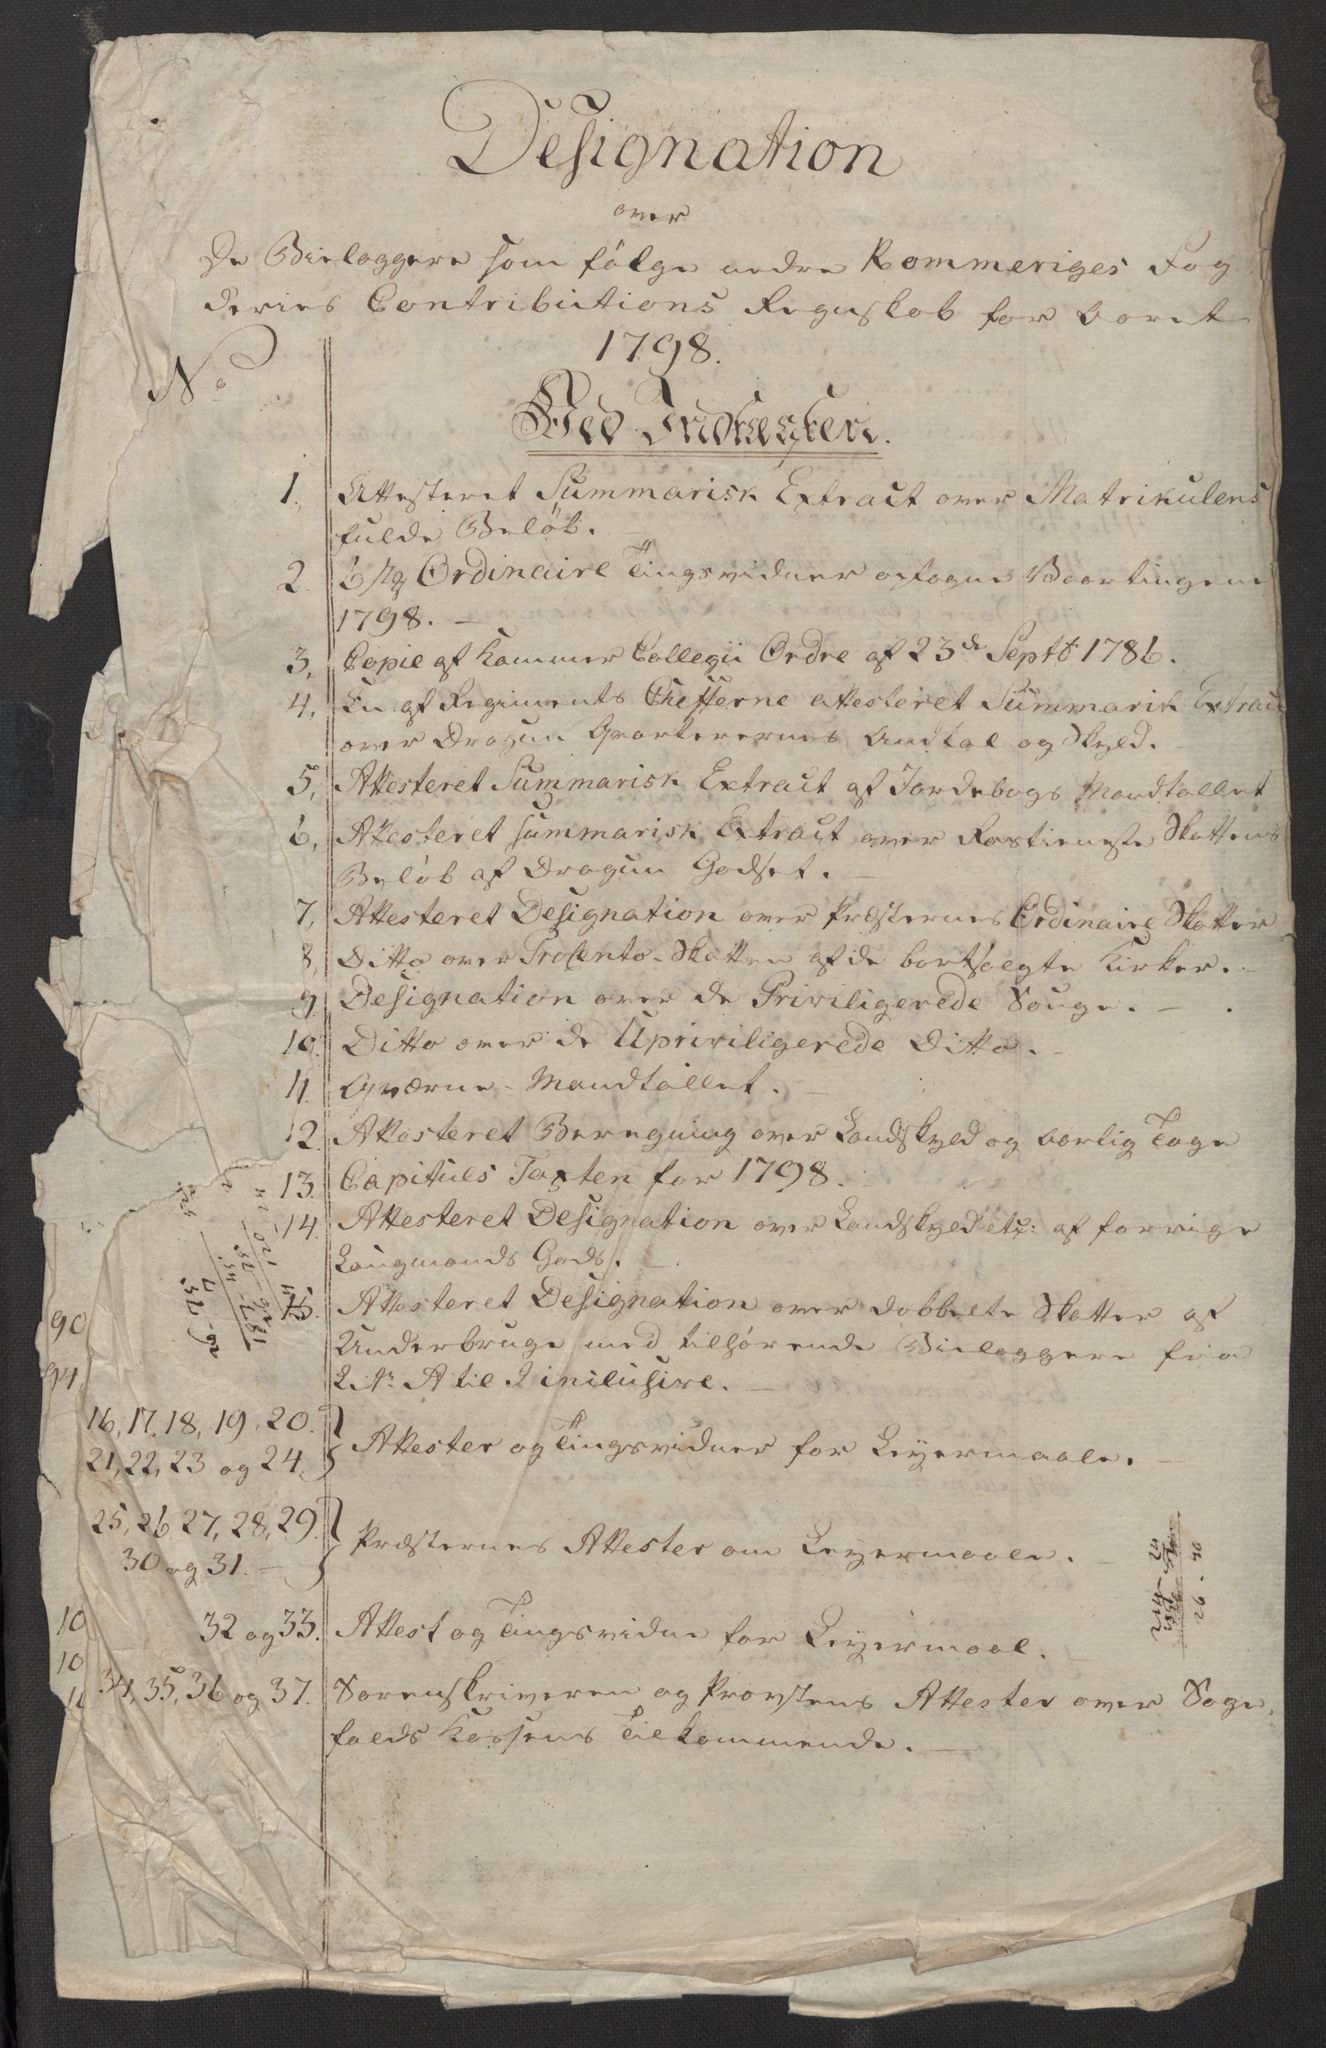 Designation
over
De Bielaggere som følge nedre Rommeriges Fog
deries Contributions Regnskab for Aaret
1798.
No
Ved Indtægten.
1. Attesteret Summarisk Extract over Matrikulens
fulde Beløb.
2. 6 stk Ordinaire Tingsvidner optagne Vaartingene
1798.
3, Copie af Kammer Collegii Ordre af 23de Septb 1786.
4, En af Regiments Chefferne attesteret Summarisk Extract
over Dragun Qvarterernes Andtal og Skyld.
5, Attesteret Summarisk Extract af Jordebogs Mandtallet
6, Attesteret summarisk Extract over Rostieneste Skattens
Beløb af Dragun Godset.
7, Attesteret Designation over Præsternes Ordinaire Skatter
8, Ditto over Procento-Skatten af de bortsolgte Kirker.
9 Designation over de Priviligerede Sauge.
10. Ditto over de Upriviligerede Ditto.
11. Qværne-Mandtallet.
12. Attesteret Beregning over Landskyld og aarlig Tage
13. Capituls Taxten for 1798.
14. Attesteret Designation over Landskyld etc: af forrige
Laugmands Gods.
15. Attesteret Designation over dobbelte Skatter af
Underbruge med tilhørende Bielaggere fra
Litr A til I inclusive.
90
94
16, 17, 18, 19, 20.
21, 22, 23 og 24. Attester og Tingsvidner for Leyermaale.
25, 26, 27, 28, 29.
30 og 31. Præsternes Attester om Leyermaale.
10 32 og 33. Attest og Tingsvidne for Leyermaal.
10
34, 35, 36 og 37. Sorenskriveren og Provstens Attester over Sage
falds Kassens Tilkommende.